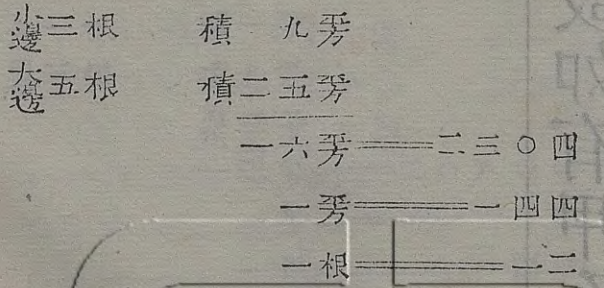 小邊三根 積 九平方
大邊五根 積二五平方
一六平方══二三〇四
一平方══一四四
一根══一二